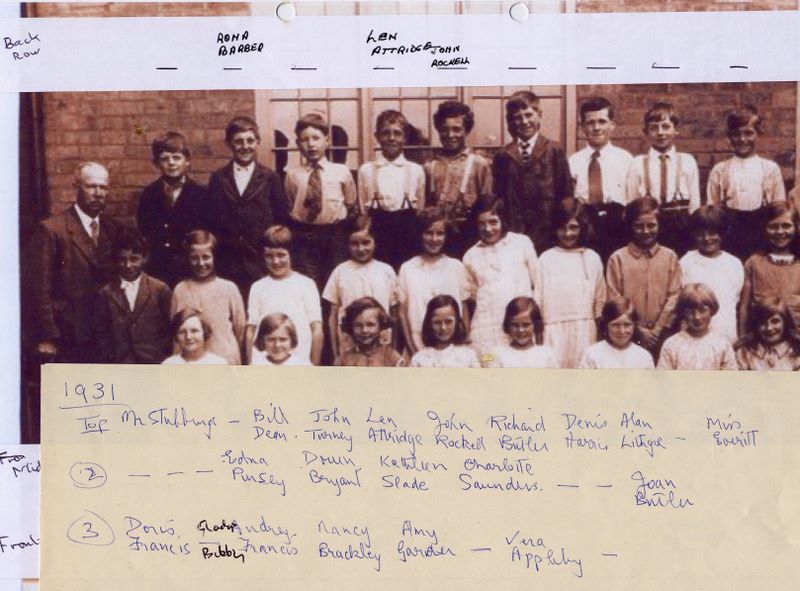 Back
Row
RONA
BARBER
LEN
ATTRIDGE
JOHN
ROCKELL
1931
Top Mr Stubbings - Bill John Len John Richard Denis Alan Miss
Dean. Turney Attridge Rockell Butler Harris - Everitt
2 - - - Edna Kathleen Charlotte
Pursey Bryant Slade Saunders. - - - Joan
Butler
3 Doris, Audrey. Nancy Amy Vera
Francis Bibby Francis Brackley Gardner - Appleby -
Front
Front